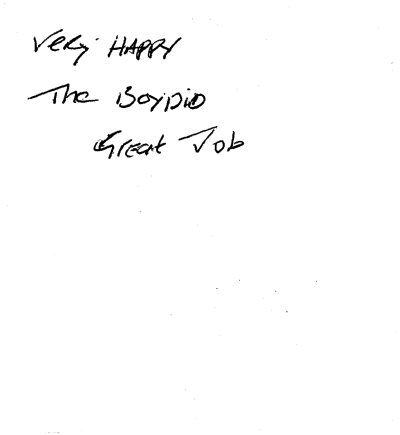 Very HAPPY
The Boy DiD
Great Job